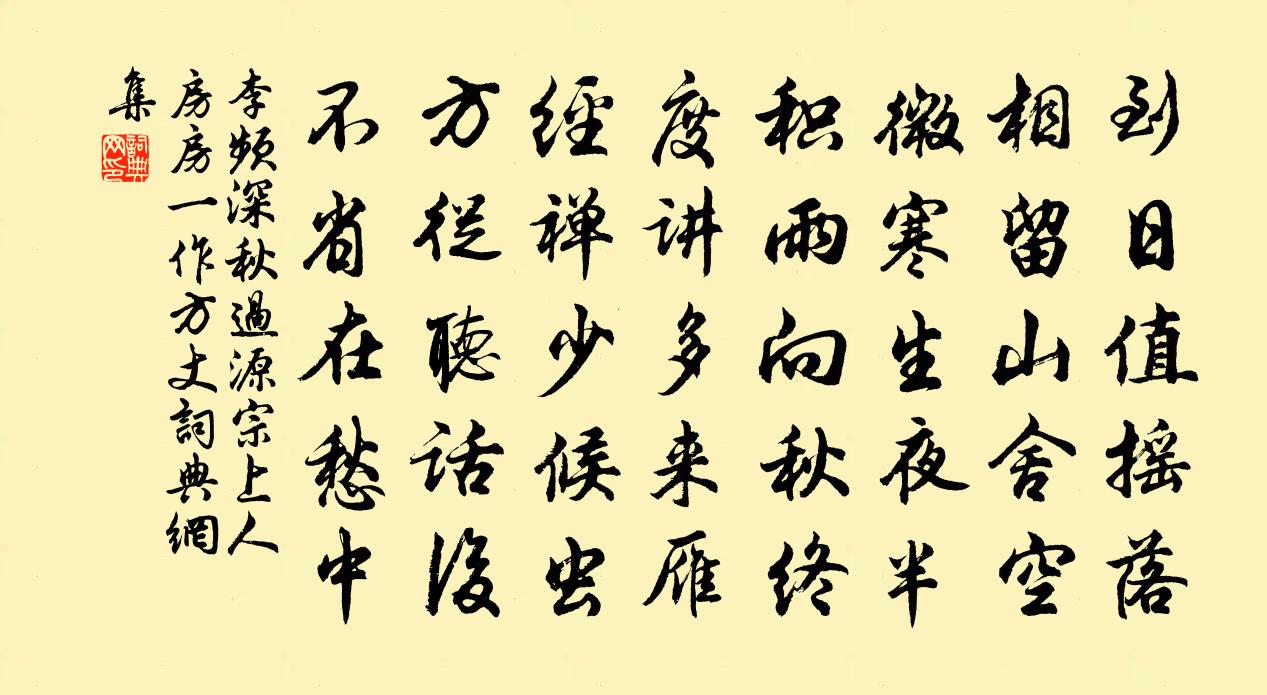 到日值摇落
相留山舍空
微寒生夜半
积雨向秋终
度讲多来雁
經禅少候虫
方從聽话後
不省在愁中
李频深秋過源宗上人
房房一作方丈詞典網
集
詞典網印